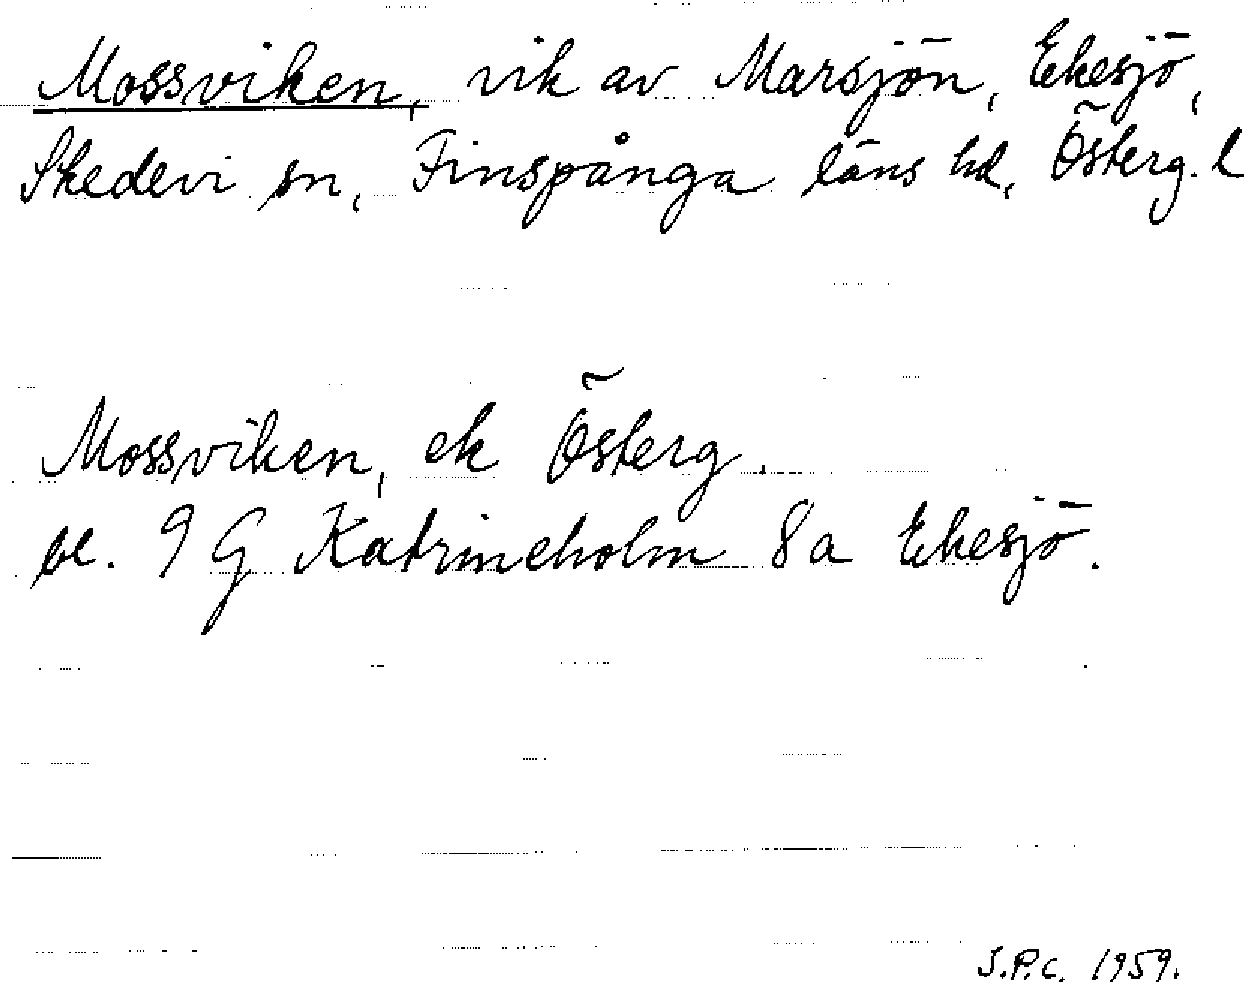 Mossviken, vik av Marsjön, Ekesjö,
Skedevi sn, Finspånga läns hd, Österg. l
Mossviken, ek Österg.
bl. 9 G Katrineholm 8a Ekesjö.
J.P.C. 1959.